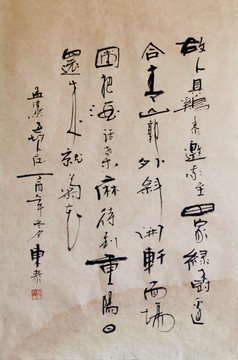 故人具鷄黍邀我至田家緑樹邊
合青山郭外斜開軒面場
圃把酒話桑麻待到重陽日
還來就菊花
孟 酉年冬